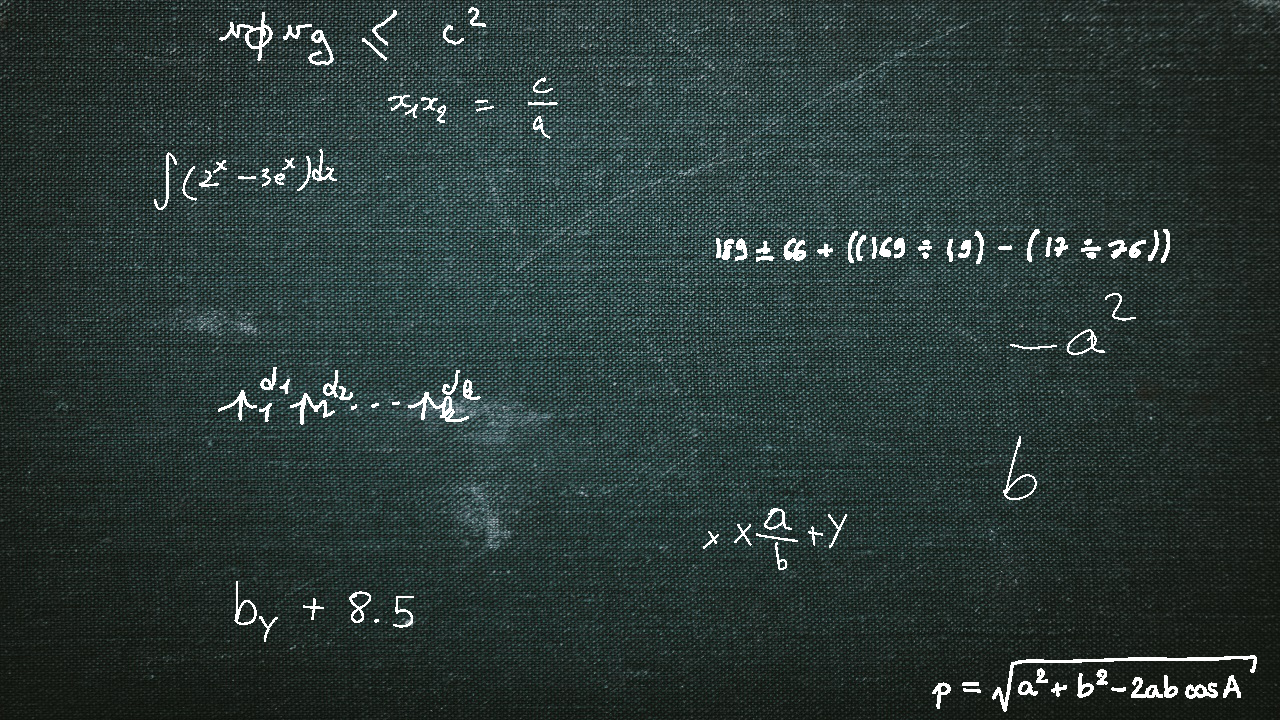 vϕ vg ⩽ c²
x₁x₂ = c/a
∫(2ˣ − 3eˣ)dx
189 ± 66 + ((169 ÷ 19) − (17 ÷ 76))
−a²
p₁^{d₁} p₂^{d₂} ⋯ p_k^{d_k}
b
x × a/b + y
b_y + 8.5
p = √(a² + b² − 2ab cos A)